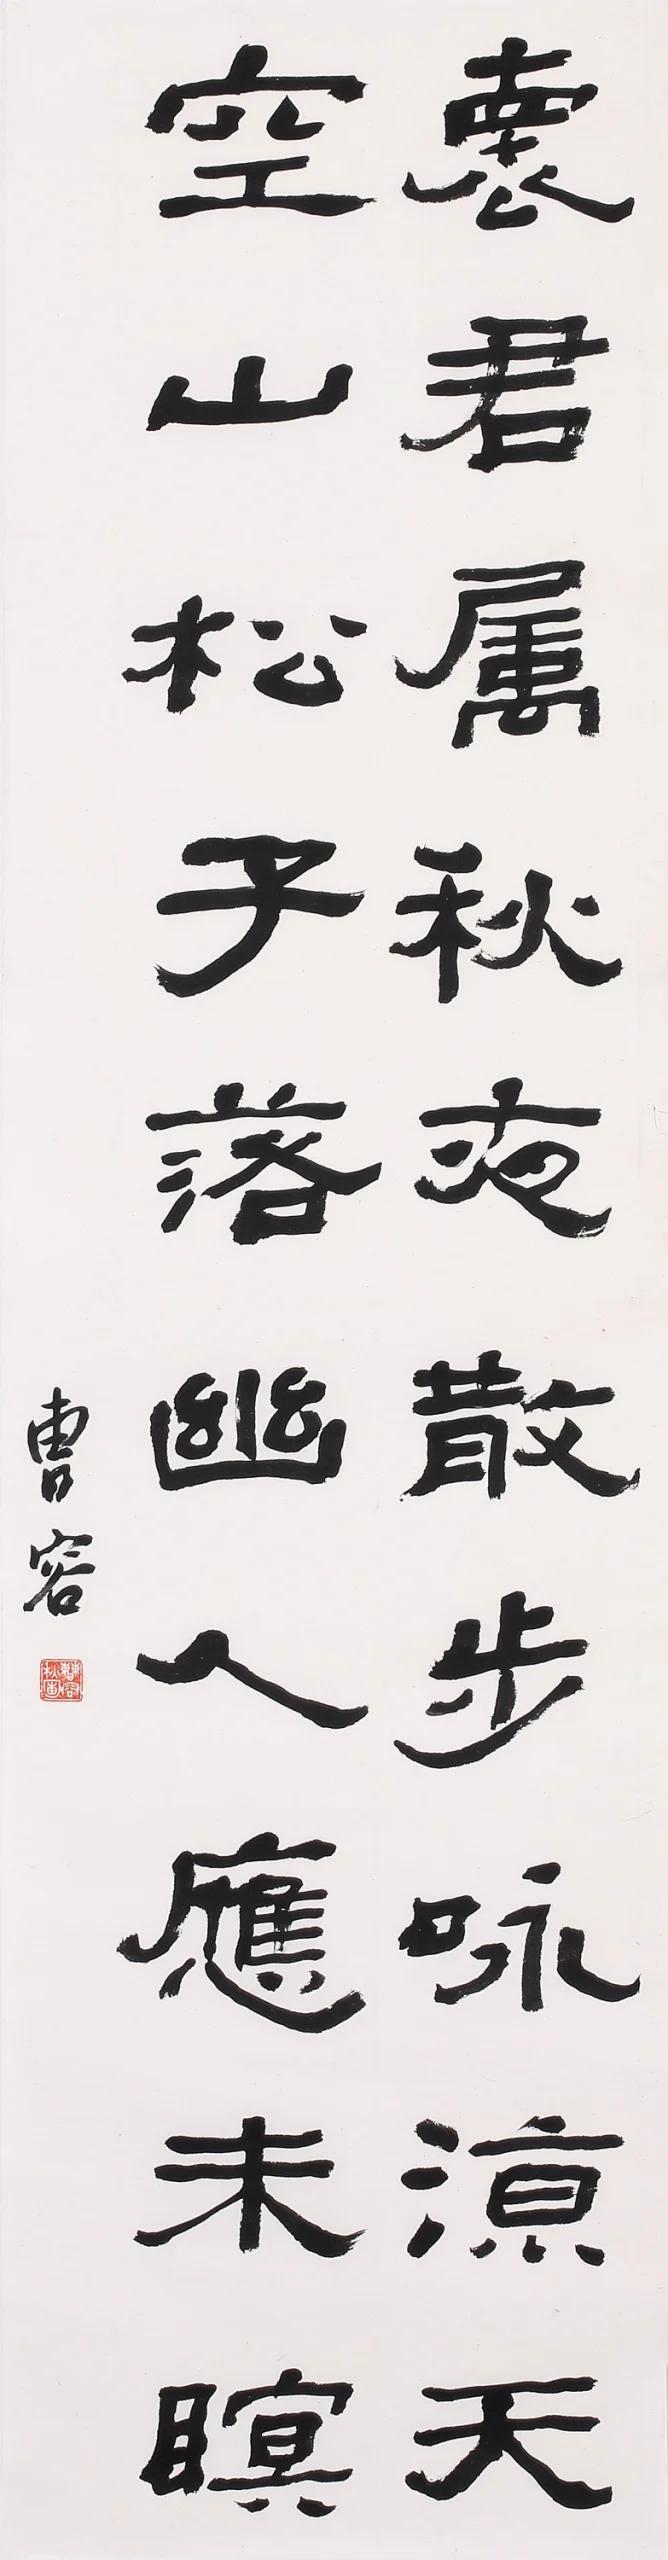 懷君属秋夜散步咏涼天
空山松子落幽人應未瞑
曹容
曹容秋圃